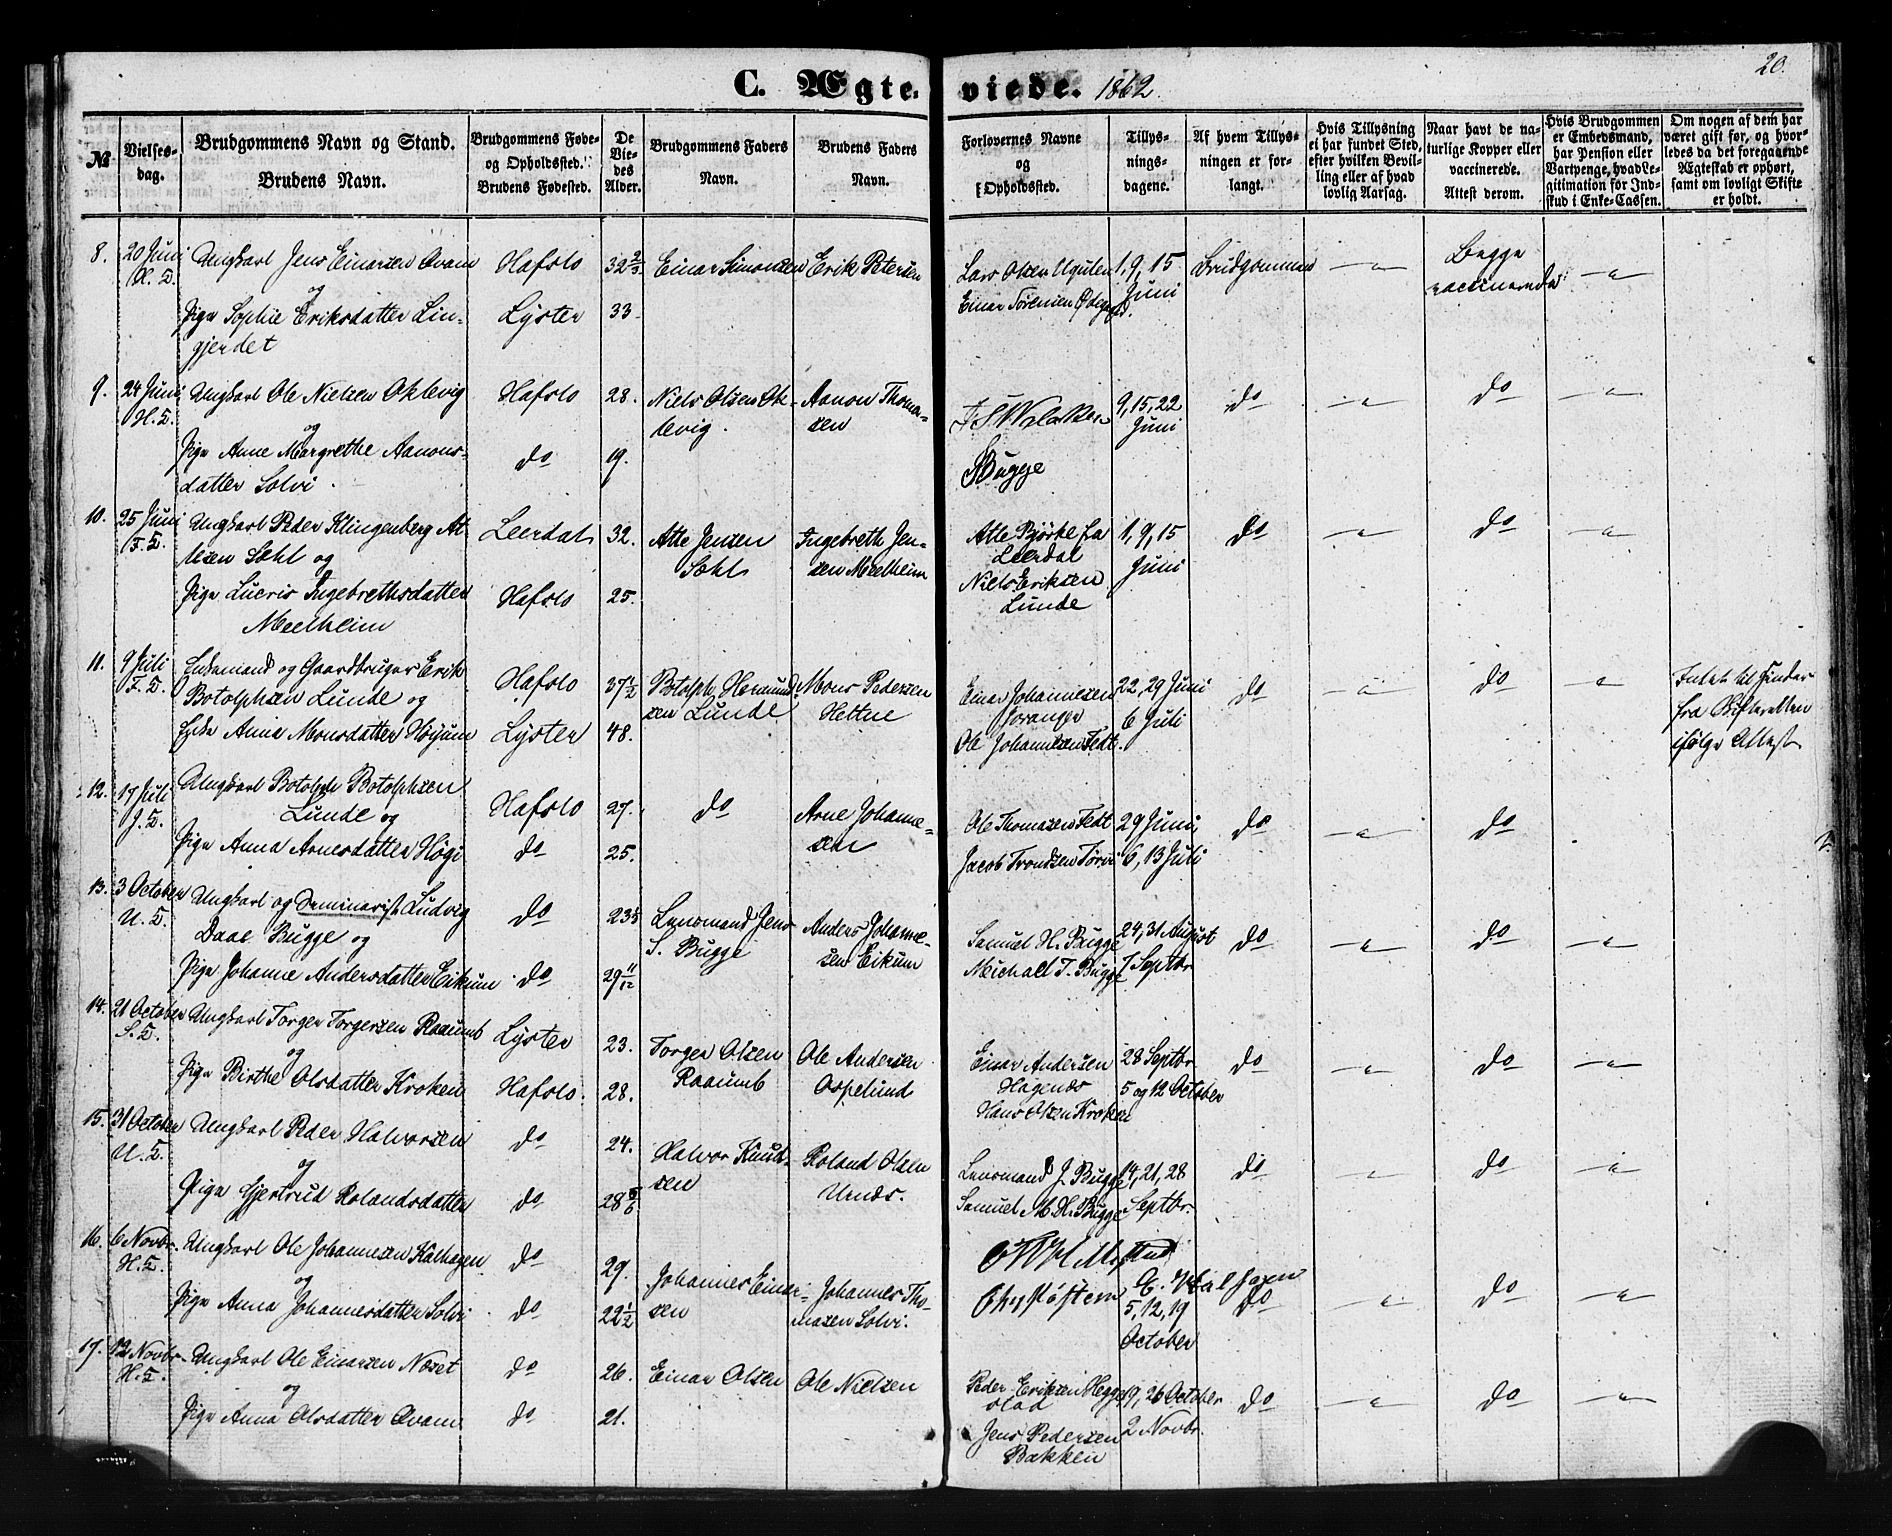 20.
C. Ægte-viede. 1862.
№
Vielses-dag.
Brudgommens Navn og Stand.
Brudens Navn.
Brudgommens Føde- og Opholdssted.
Brudens Fødested.
De Vie-des Alder.
Brudgommens Faders Navn.
Brudens Faders Navn.
Forlovernes Navne og Opholdssted.
Tillys-nings-dagene.
Af hvem Tillys-ningen er for-langt.
Hvis Tillysning ei har fundet Sted, efter hvilken Bevil-ling eller af hvad lovlig Aarsag.
Naar havt de na-turlige Kopper eller vaccinerede.
Attest derom.
Hvis Brudgommen er Embedsmand, har Pension eller Vartpenge, hvad Le-gitimation for Ind-skud i Enke-Cassen.
Om nogen af dem har været gift før, og hvor-ledes da det foregaaende Ægteskab er ophørt, samt om lovligt Skifte er holdt.
8. 20 Juni Ungkarl Jens Einarsen Qvam Hafslo 32 2/3 Einar Simonsen Erik Petersen Lars Olsen 1, 9, 15 Juni Brudgommen Begge vaccinerede
og
Pige Sophie Eriksdatter Lin-gjerdet Lyster 33 Einar Sørensen
9. 24 Juni H. S. Ungkarl Ole Nielsen Oklevig Hafslo 28. Niels Olsen Ok-levig. Aanon Thoma-sen 9, 15, 22 Juni do do
og
Pige Anne Margrethe Aanons-datter Solvi do 19. Bugge
10. 25 Juni F. S. Ungkarl Peder Klingenberg At-lesen Sæhl og Leerdal 32. Atle Jensen Sæhl Ingebreth Jen-sen Meelheim Atle Bjørke fra Leerdal 1, 9, 15 Juni do do
Pige Lucris Ingebrethsdatter Meelheim Hafslo 25. Niels Eriksen Lunde
11. 9 Juli F. S. Enkemand og Gaardbruger Erik Botolphsen Lunde og Hafslo 37 1/2 Botolph Hermund-sen Lunde Mons Pedersen Hettne Einar Johannesen Joranger 22, 29 Juni 6 Juli do do Intet til Hinder fra Skifteretten ifølge Attest
Enke Anna Monsdatter Høyum Lyster 48. Ole Johannesen Fedt.
12. 17 Juli J. S. Ungkarl Botolph Botolphsen Lunde og Hafslo 27. do Arne Johanne-sen Ole Thomasen Fedt 29 Juni, 6, 13 Juli do do
Pige Anna Arnesdatter Høgi do 25. Jacob Trondsen Tørvi
13. 3 October U. S. Ungkarl og Seminarist Ludvig Daae Bugge og do 23 Lensmand Jens S. Bugge Anders Johanne-sen Eikum Samuel H. Bugge 24, 31 August 7 Septbr. do do
Pige Johanne Andersdatter Eikum do 29 11/12 Michall T. Bugge
14. 21 October S. S. Ungkarl Torger Torgersen Raaumb Lyster 23. Torger Olsen Raaumb Ole Andersen Ospelund Einar Andersen Hagenæs 28 Septbr. 5 og 12 October do do
og
Pige Birthe Olsdatter Kroken Hafslo. 28. Hans Olsen Kroken
15. 31 October U. S. Ungkarl Peder Halvorsen do 24. Halvor Knud-sen Roland Olsen Urnæs. Lensmand J. Bugge 14, 21, 28 Septbr. do do
og
Pige Gjertrud Rolandsdatter do 28 5/6 Samuel H. Bugge
16. 6 Novbr. H. S. Ungkarl Ole Johannesen Kalhagen do 29. Johannes Einar-sen Johannes Tho-masen Solvi. 5, 12, 19 October do do
og
Pige Anna Johannesdatter Solvi do 22 1/2
17. 12 Novbr. H. S. Ungkarl Ole Einarsen Næset do 26. Einar Olsen Ole Nielsen Peder Eriksen Hegge-stad 19, 26 October 2 Novbr. do do
og
Pige Anna Olsdatter Qvam do 21. Jens Pedersen Bakken